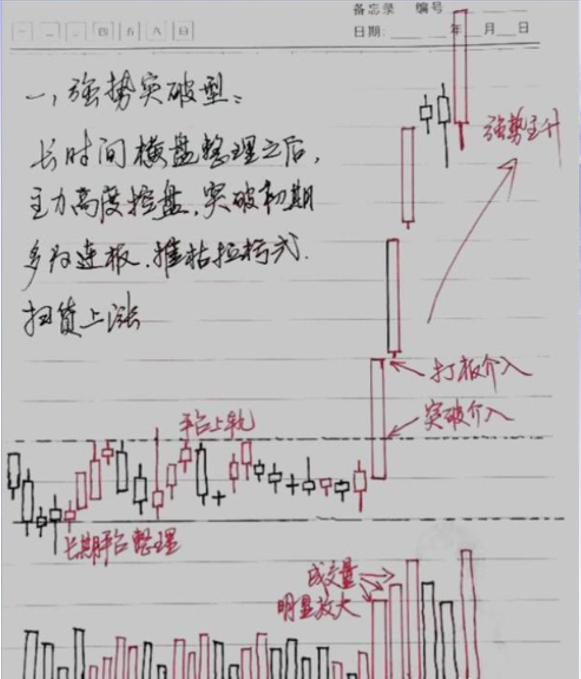 备忘录 编号
一 二 三 四 五 六 日
日期: 年 月 日
一, 强势突破型:
长时间横盘整理之后,
主力高度控盘, 突破初期
多为连板, 摧枯拉朽式
扫货上涨
强势主升
打板介入
突破介入
平台上轨
长期平台整理
成交量
明显放大